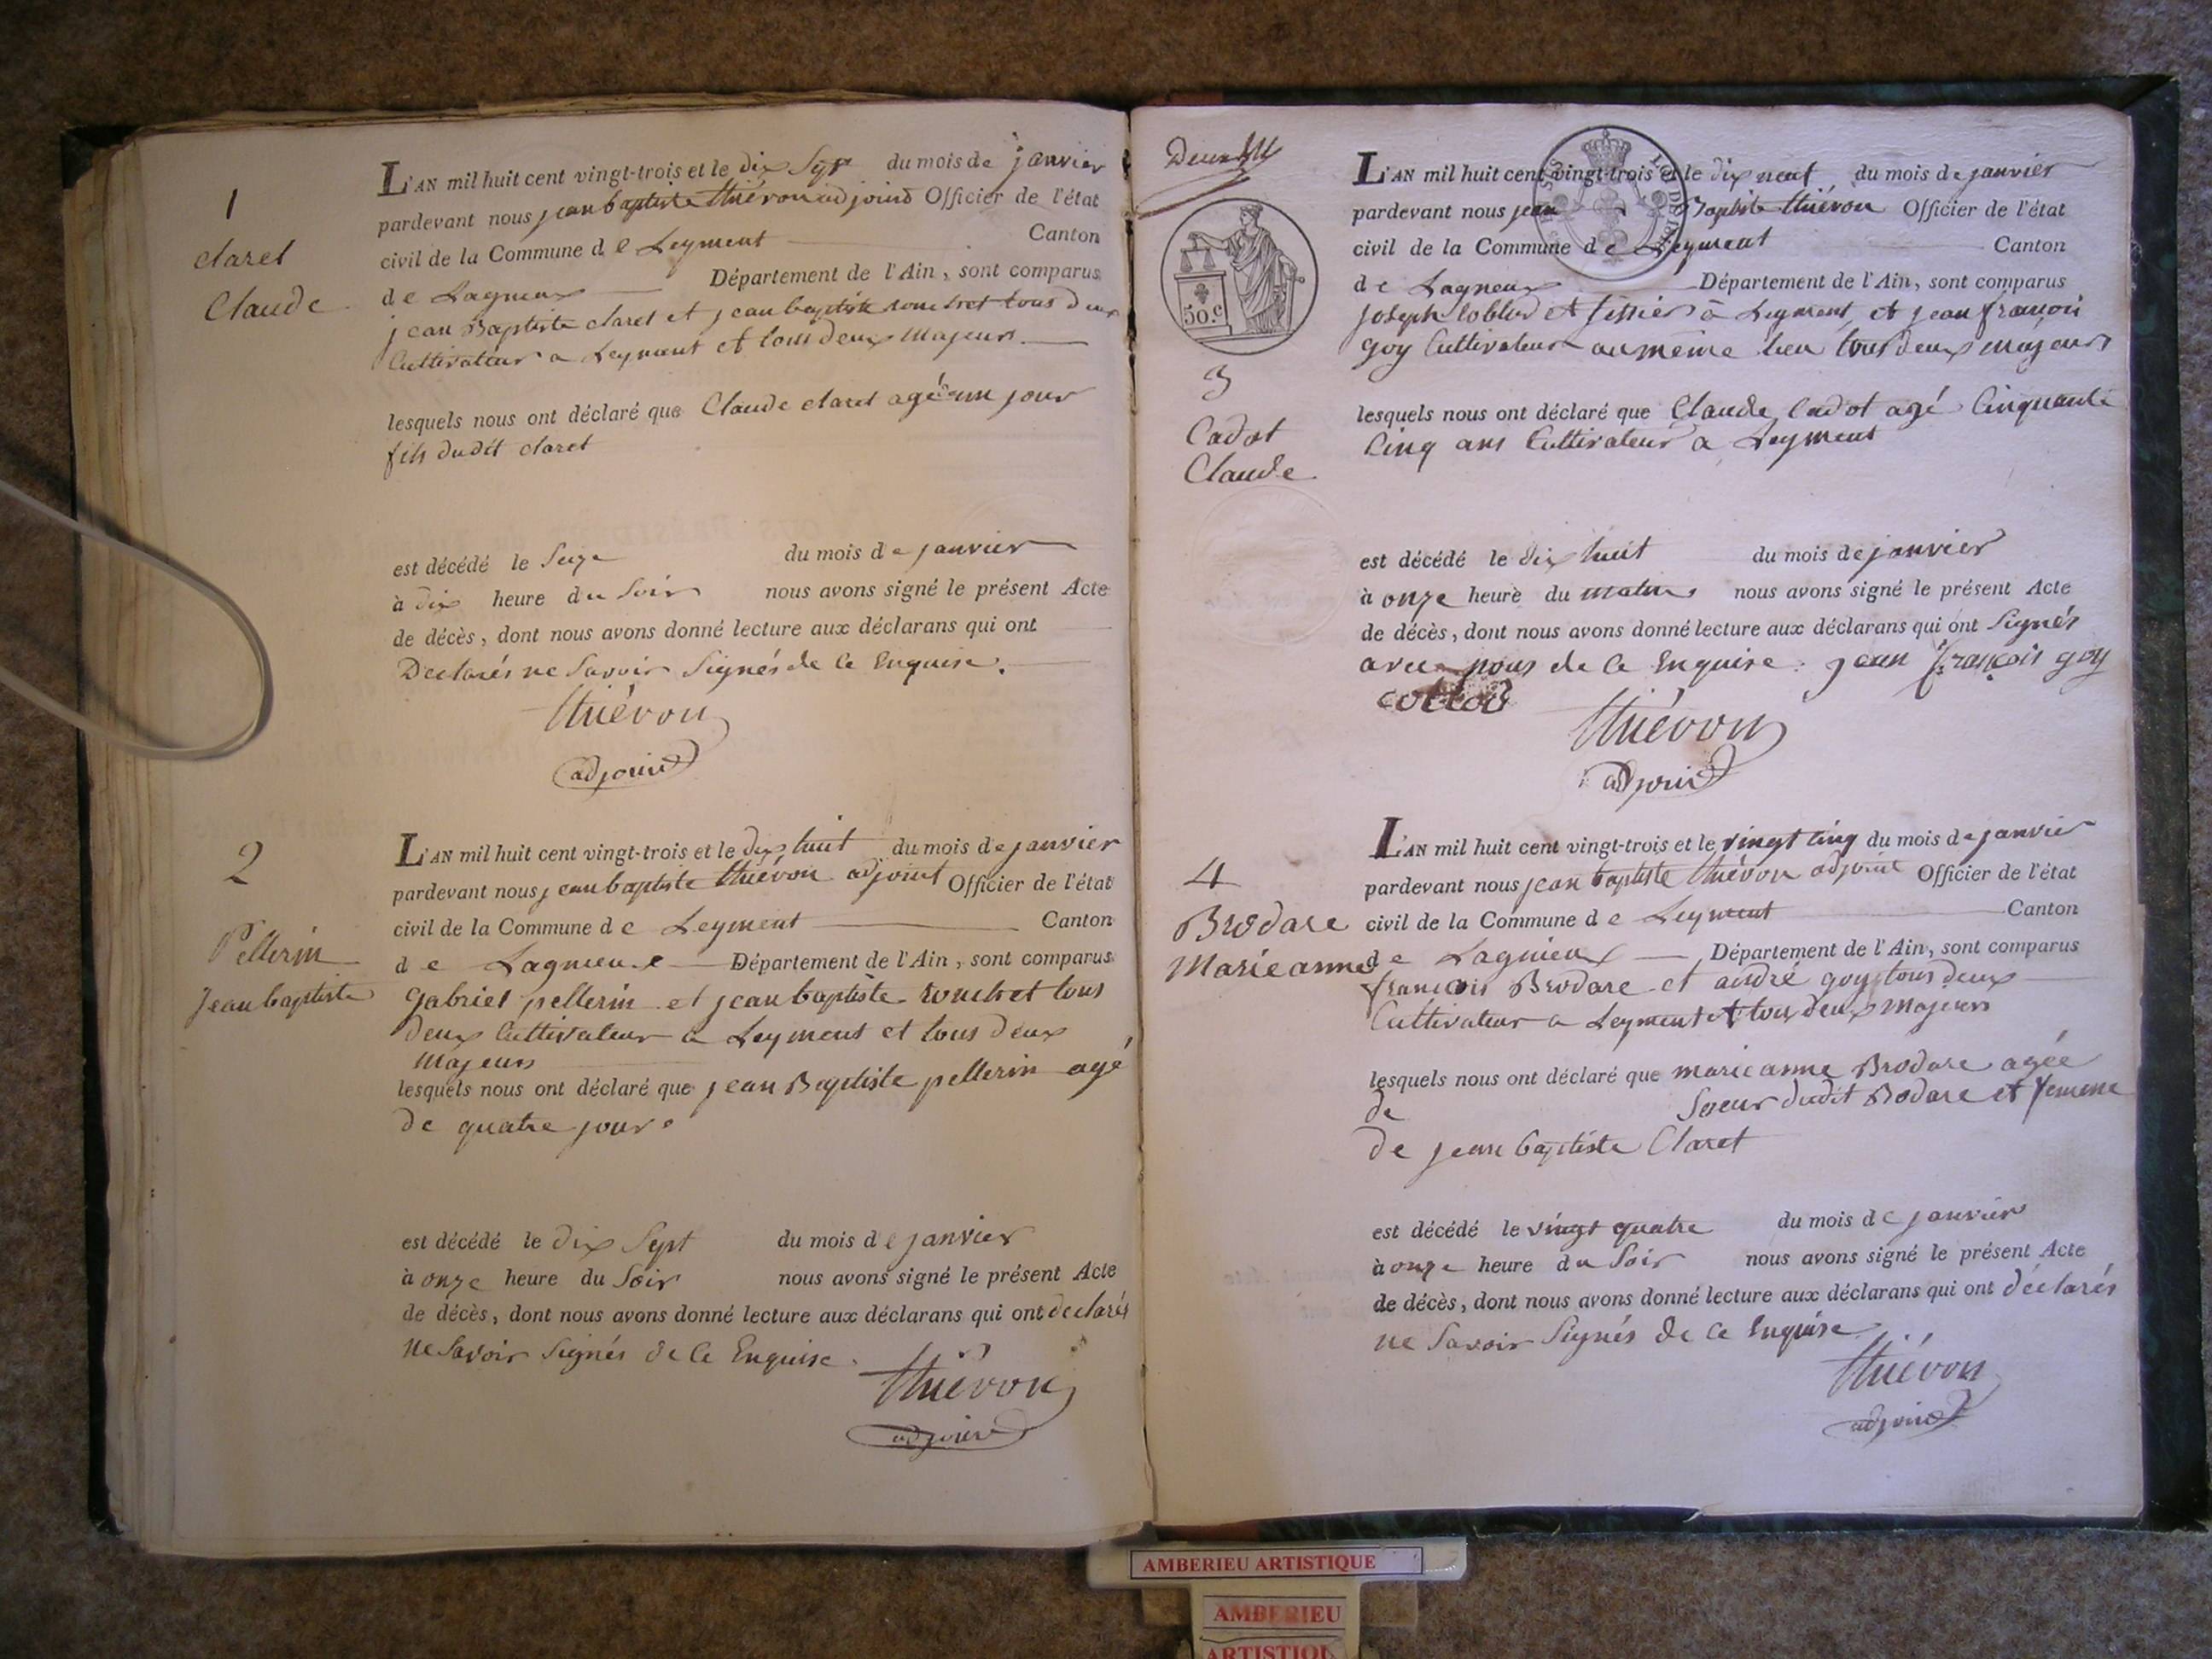 1
Claret
Claude
L'AN mil huit cent vingt-trois et le dix Sept du mois de janvier
pardevant nous jean baptiste thiévon adjoind Officier de l'état
civil de la Commune de Leyment Canton
de Lagneux Département de l'Ain, sont comparus
jean Baptiste claret et jean baptiste ronchet tous deux
Cultivateur a Leyment et tous deux Majeurs
lesquels nous ont déclaré que Claude claret agé un jour
fils dudit claret
est décédé le Seize du mois de janvier
à dix heure du Soir nous avons signé le présent Acte
de décès, dont nous avons donné lecture aux déclarans qui ont
Declarés ne Savoir Signés de ce Enquise.
thiévon
adjoind
2
Pellerin
Jean baptiste
L'AN mil huit cent vingt-trois et le dix huit du mois de janvier
pardevant nous jean baptiste thiévon adjoint Officier de l'état
civil de la Commune de Leyment Canton
de Lagnieux Département de l'Ain, sont comparus
Gabriel pellerin et jean baptiste ronchet tous
deux Cultivateur a Leyment et tous deux
Majeurs
lesquels nous ont déclaré que jean Baptiste pellerin agé
de quatre jours
est décédé le dix Sept du mois de janvier
à onze heure du Soir nous avons signé le présent Acte
de décès, dont nous avons donné lecture aux déclarans qui ont declarés
ne Savoir Signés de ce Enquise.
thiévon
adjoind
3
Cadot
Claude
50.c
L'AN mil huit cent vingt-trois et le dix neuf du mois de janvier
pardevant nous jean Baptiste thiévon Officier de l'état
civil de la Commune de Leyment Canton
de Lagneux Département de l'Ain, sont comparus
joseph colloud et tissier à Leyment, et jean françois
goy Cultivateur au même lieu tous deux majeurs
lesquels nous ont déclaré que Claude Cadot agé Cinquante
Cinq ans Cultivateur a Leyment
est décédé le dix huit du mois de janvier
à onze heure du matin nous avons signé le présent Acte
de décès, dont nous avons donné lecture aux déclarans qui ont Signés
avec nous de ce Enquise. jean françois goy
thiévon
adjoind
4
Brodare
Marie anne
L'AN mil huit cent vingt-trois et le vingt cinq du mois de janvier
pardevant nous jean baptiste thiévon adjoint Officier de l'état
civil de la Commune de Leyment Canton
de Lagnieux Département de l'Ain, sont comparus
françois Brodare et andré goy tous deux
Cultivateur a Leyment et tous deux Majeurs
lesquels nous ont déclaré que marie anne Brodare agée
de Soeur dudit Bodare et femme
de jean baptiste Claret
est décédé le vingt quatre du mois de janvier
à onze heure du Soir nous avons signé le présent Acte
de décès, dont nous avons donné lecture aux déclarans qui ont déclarés
ne Savoir Signés de ce Enquise
thiévon
adjoind
AMBERIEU ARTISTIQUE
AMBERIEU
ARTISTIQU